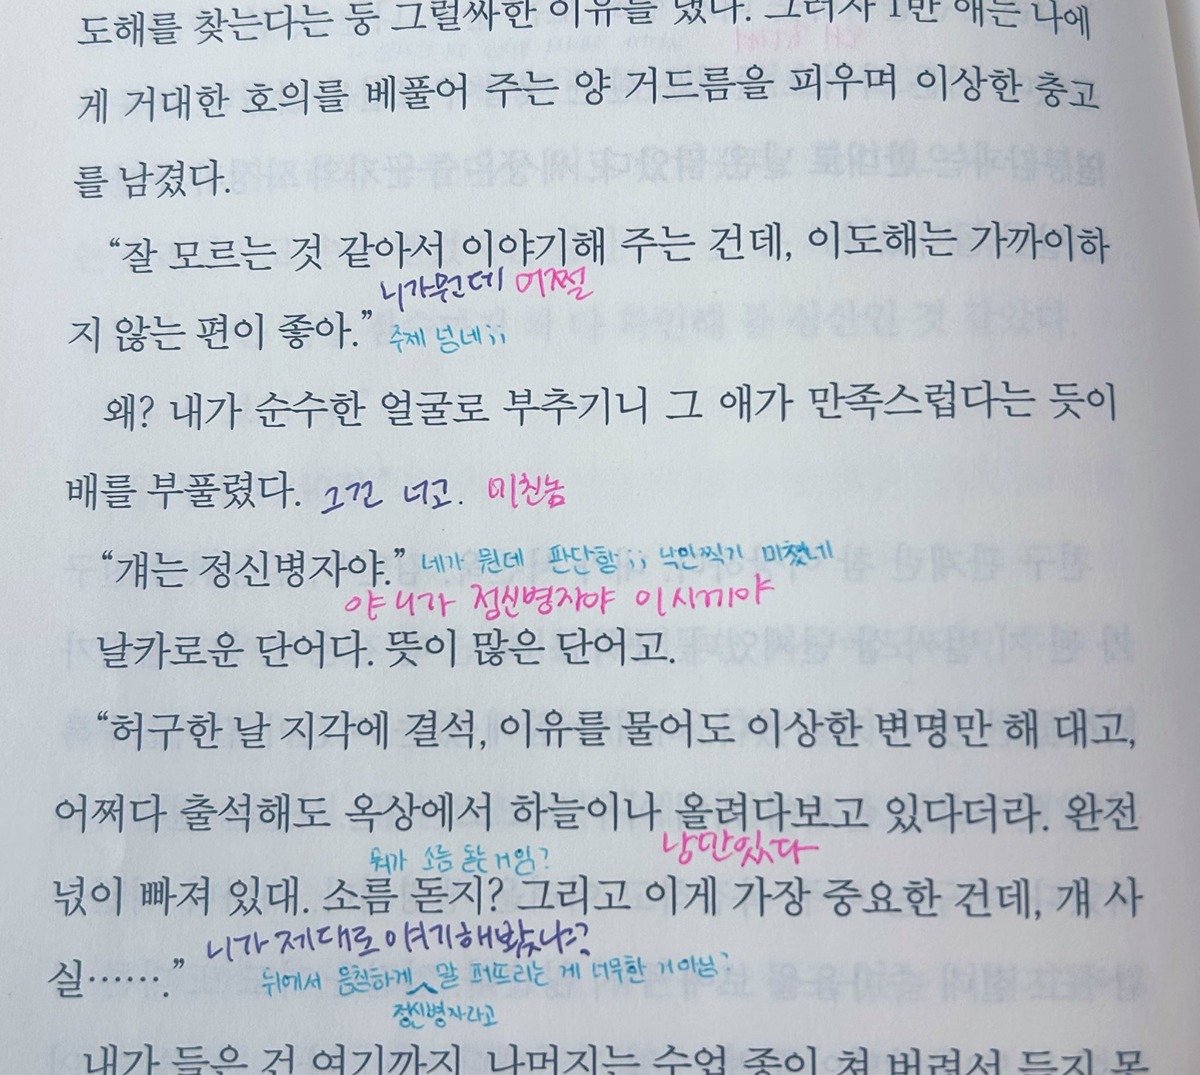 도해를 찾는다는 둥 그럴싸한 이유를 댔다. 그러자 1만 애는 나에
게 거대한 호의를 베풀어 주는 양 거드름을 피우며 이상한 충고
를 남겼다.
“잘 모르는 것 같아서 이야기해 주는 건데, 이도해는 가까이하
니가뭔데 어쩔
지 않는 편이 좋아.” 주제 넘네;;
왜? 내가 순수한 얼굴로 부추기니 그 애가 만족스럽다는 듯이
배를 부풀렸다. 그건 너고. 미친놈
“걔는 정신병자야.” 네가 뭔데 판단함;; 낙인찍기 미쳤네
야 니가 정신병자야 이시끼야
날카로운 단어다. 뜻이 많은 단어고.
“허구한 날 지각에 결석, 이유를 물어도 이상한 변명만 해 대고,
어쩌다 출석해도 옥상에서 하늘이나 올려다보고 있다더라. 완전
뭐가 소름 돋는 거임? 낭만있다
넋이 빠져 있대. 소름 돋지? 그리고 이게 가장 중요한 건데, 걔 사
니가 제대로 얘기해봤냐?
실…….” 뒤에서 음침하게 말 퍼뜨리는 게 너무한 거 아님?
정신병자라고
내가 들은 건 여기까지. 나머지는 수업 종이 쳐 버려서 듣지 못